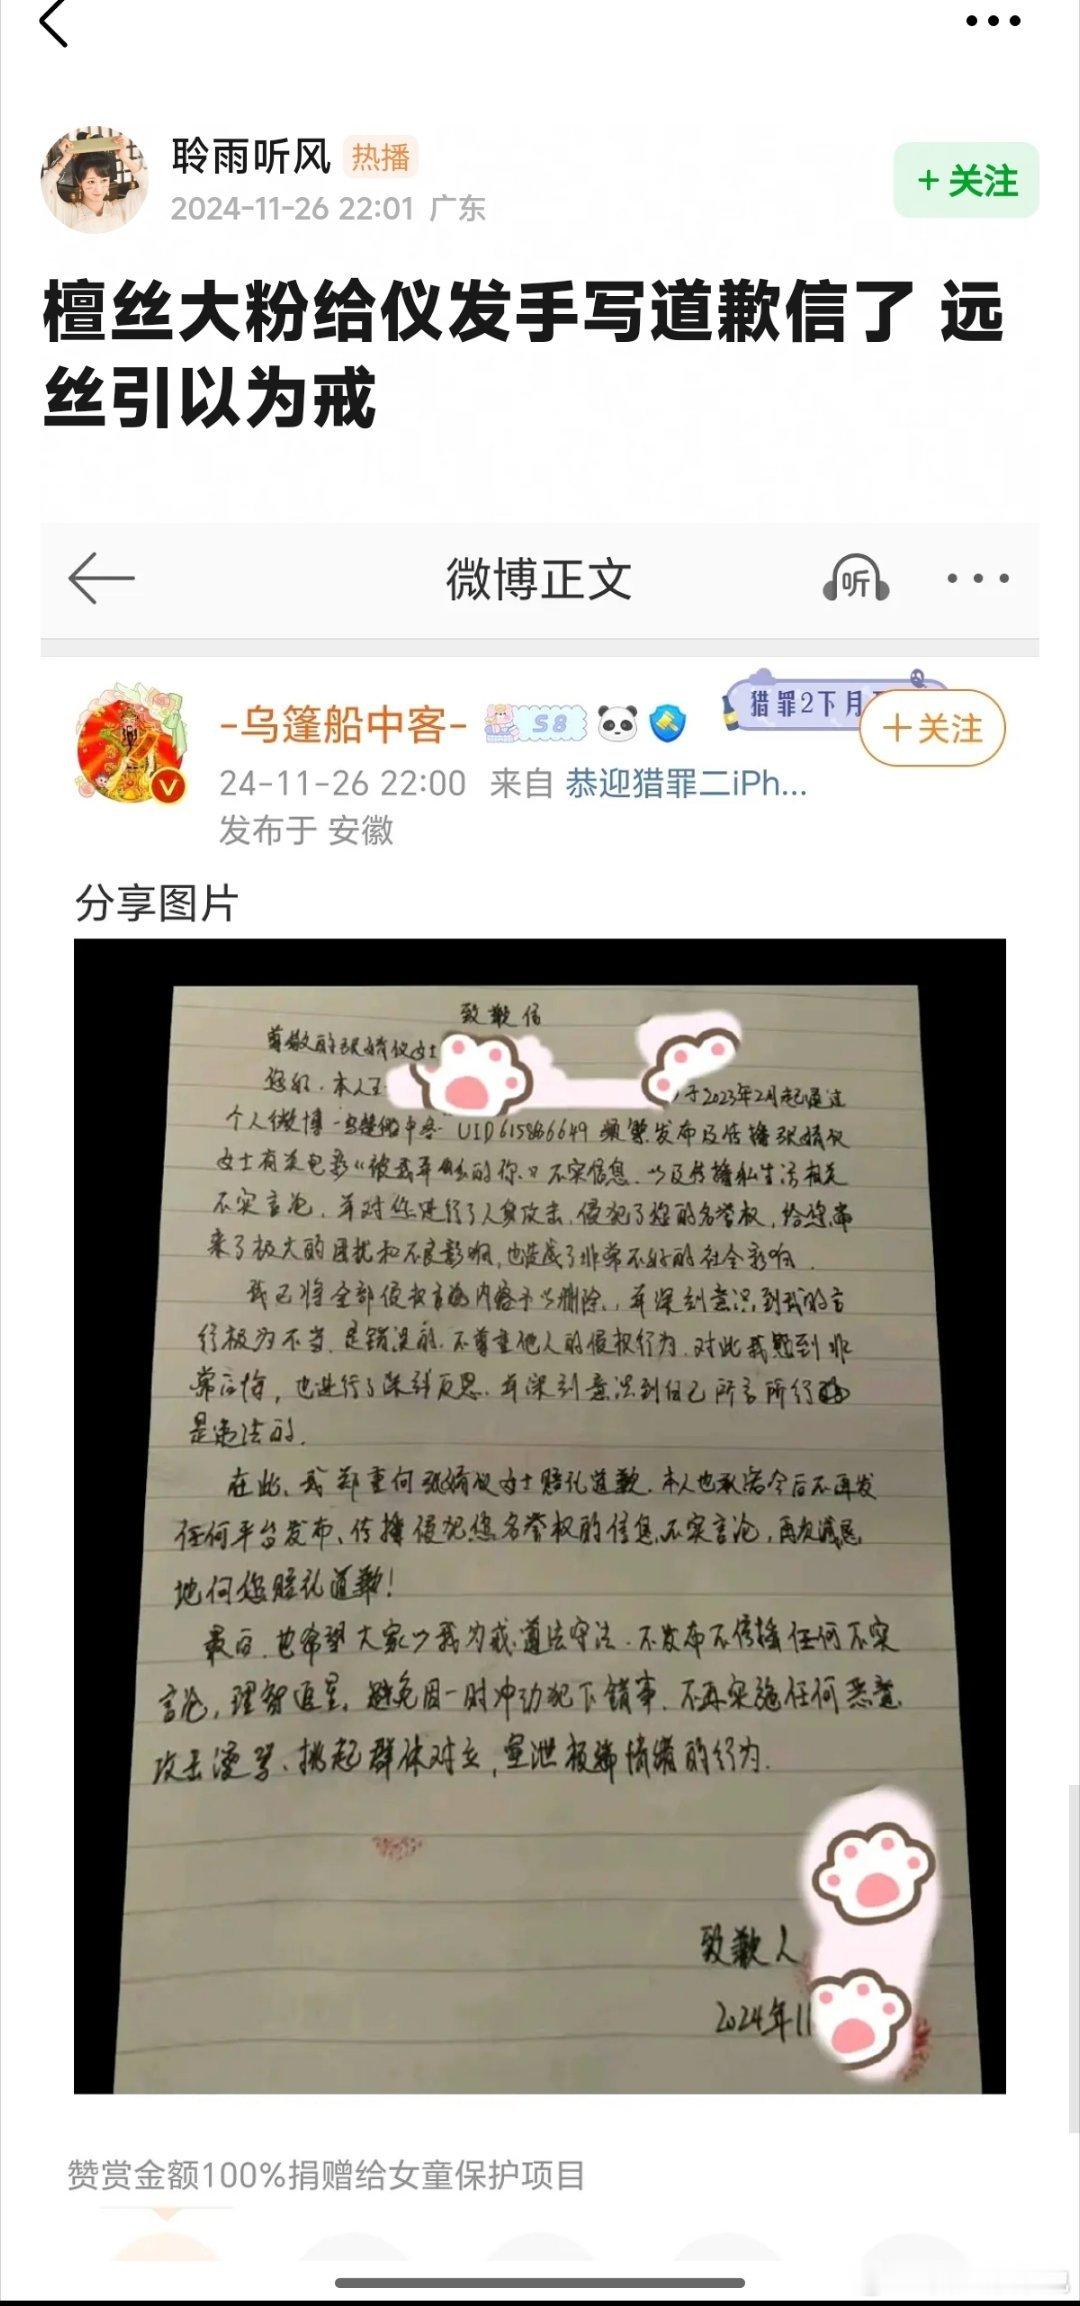 聆雨听风 热播
2024-11-26 22:01 广东
+ 关注
檀丝大粉给仪发手写道歉信了 远
丝引以为戒
微博正文
听
-乌篷船中客-
S8
猎罪2下月
+关注
24-11-26 22:00 来自 恭迎猎罪二iPh...
发布于 安徽
分享图片
致歉信
尊敬的张婧仪女士
您好，本人王
于2023年2月起通过
个人微博-乌篷船中客- UID6158466649 频繁发布及传播张婧仪
女士有关电影《被我弄丢的你》不实信息，以及传播私生活相关
不实言论，并对您进行了人身攻击，侵犯了您的名誉权，给您带
来了极大的困扰和不良影响，也造成了非常不好的社会影响．
我已将全部侵权言论内容予以删除，并深刻意识到我的言
行极为不当，是错误的，不尊重他人的侵权行为，对此我感到非
常后悔，也进行了深刻反思，并深刻意识到自己所言所行
是违法的．
在此，我郑重向张婧仪女士赔礼道歉，本人也承诺今后不再发
任何平台发布、传播侵犯您名誉权的信息、不实言论，再次诚恳
地向您赔礼道歉！
最后，也希望大家以我为戒，遵法守法，不发布不传播任何不实
言论，理智追星，避免因一时冲动犯下错事，不再实施任何恶意
攻击谩骂、挑起群体对立，宣泄极端情绪的行为．
致歉人
2024年11
赞赏金额100%捐赠给女童保护项目